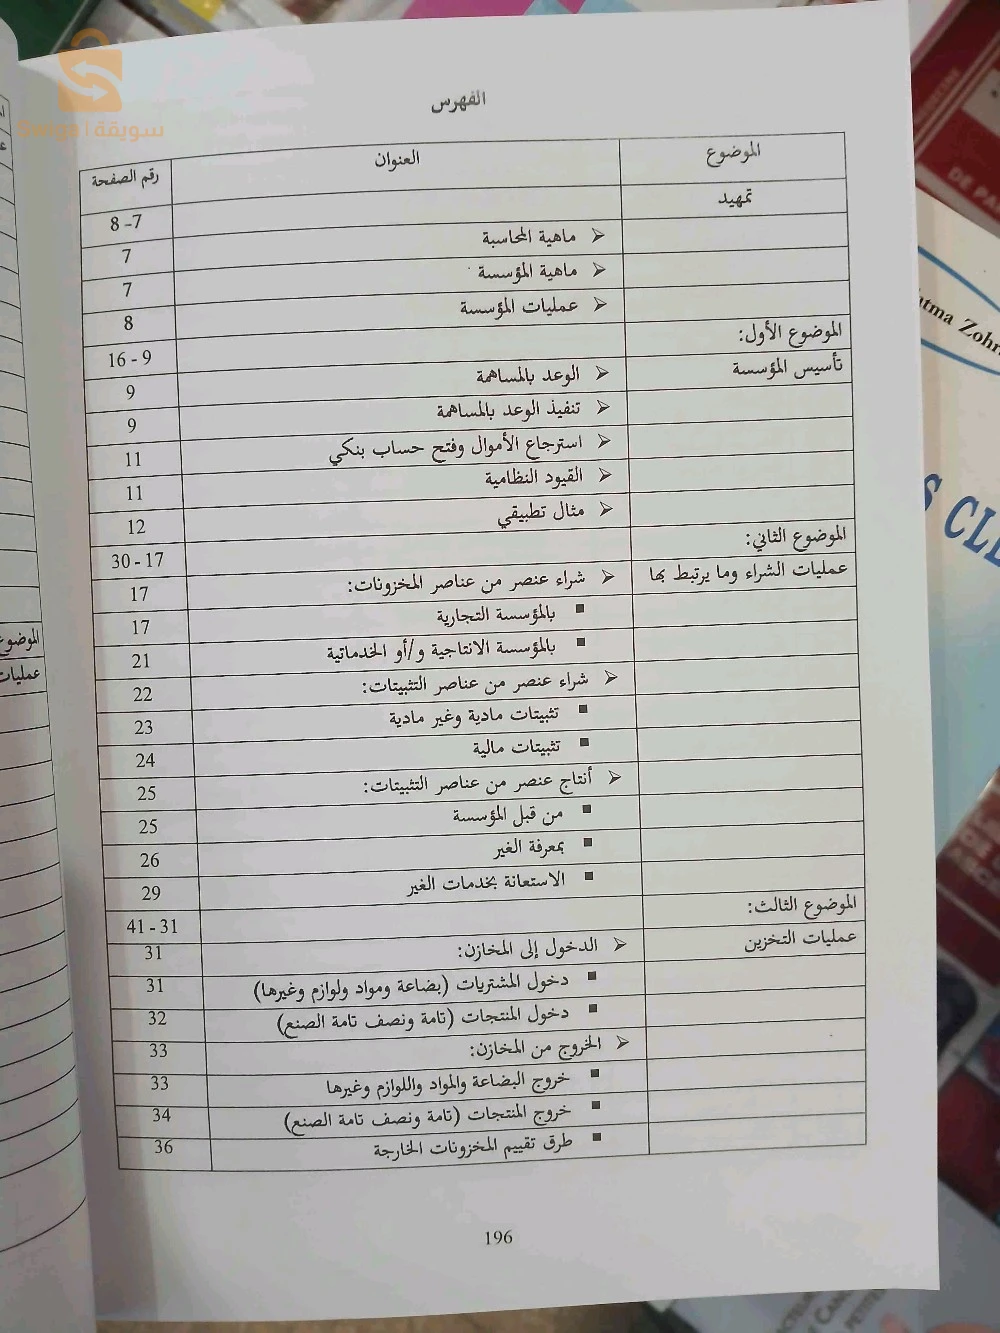 سويقة
الفهرس
الموضوع العنوان رقم الصفحة
تمهيد 7-8
ماهية المحاسبة 7
ماهية المؤسسة 7
عمليات المؤسسة 8
الموضوع الأول: 9 - 16
تأسيس المؤسسة الوعد بالمساهمة 9
تنفيذ الوعد بالمساهمة 9
استرجاع الأموال وفتح حساب بنكي 11
القيود النظامية 11
مثال تطبيقي 12
الموضوع الثاني: 17 - 30
عمليات الشراء وما يرتبط بها شراء عنصر من عناصر المخزونات: 17
بالمؤسسة التجارية 17
بالمؤسسة الانتاجية و/أو الخدماتية 21
شراء عنصر من عناصر التثبيتات: 22
تثبيتات مادية وغير مادية 23
تثبيتات مالية 24
أنتاج عنصر من عناصر التثبيتات: 25
من قبل المؤسسة 25
بمعرفة الغير 26
الاستعانة بخدمات الغير 29
الموضوع الثالث: 31 - 41
عمليات التخزين الدخول إلى المخازن: 31
دخول المشتريات (بضاعة ومواد ولوازم وغيرها) 31
دخول المنتجات (تامة ونصف تامة الصنع) 32
الخروج من المخازن: 33
خروج البضاعة والمواد واللوازم وغيرها 33
خروج المنتجات (تامة ونصف تامة الصنع) 34
طرق تقييم المخزونات الخارجة 36
196
الموضوع
عمليات
DE PA
Zohr
S CLI